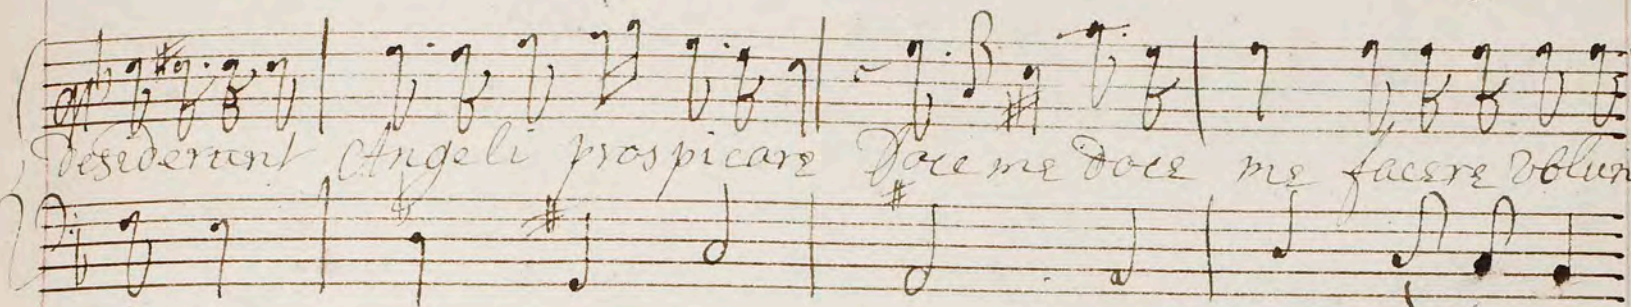 desiderant Angeli prospicare Doce me doce me facere volun